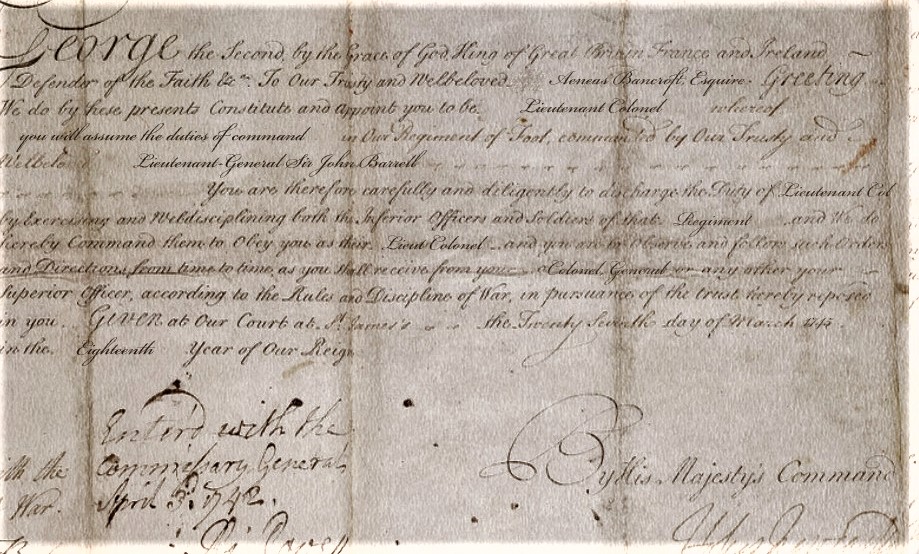 George the Second, by the Grace of God, King of Great Britain France and Ireland
Defender of the Faith &c. To Our Trusty and Welbeloved Aeneas Bancroft, Esquire Greeting
We do by these presents Constitute and appoint you to be Lieutenant Colonel whereof
you will assume the duties of command in Our Regiment of Foot, commanded by Our Trusty and
Welbelov Lieutenant-General Sir John Barrell
You are therefore carefully and diligently to discharge the Duty of Lieutenant Col
by Exercising and Weldisciplining both the Inferior Officers and Soldiers of that Regiment and We do
hereby Command them to Obey you as their Lieut Colonel and you are to observe and follow such Orders
and Directions from time to time, as you shall receive from your Colonel, General or any other your
Superior Officer, according to the Rules and Discipline of War, in pursuance of the trust hereby reposed
in you. Given at Our Court at St. James's the Twenty Seventh day of March 1745
in the Eighteenth Year of Our Reign
Enter'd with the
Commissary General
April 3d. 1742.
ith the
War.
By His Majesty's Command